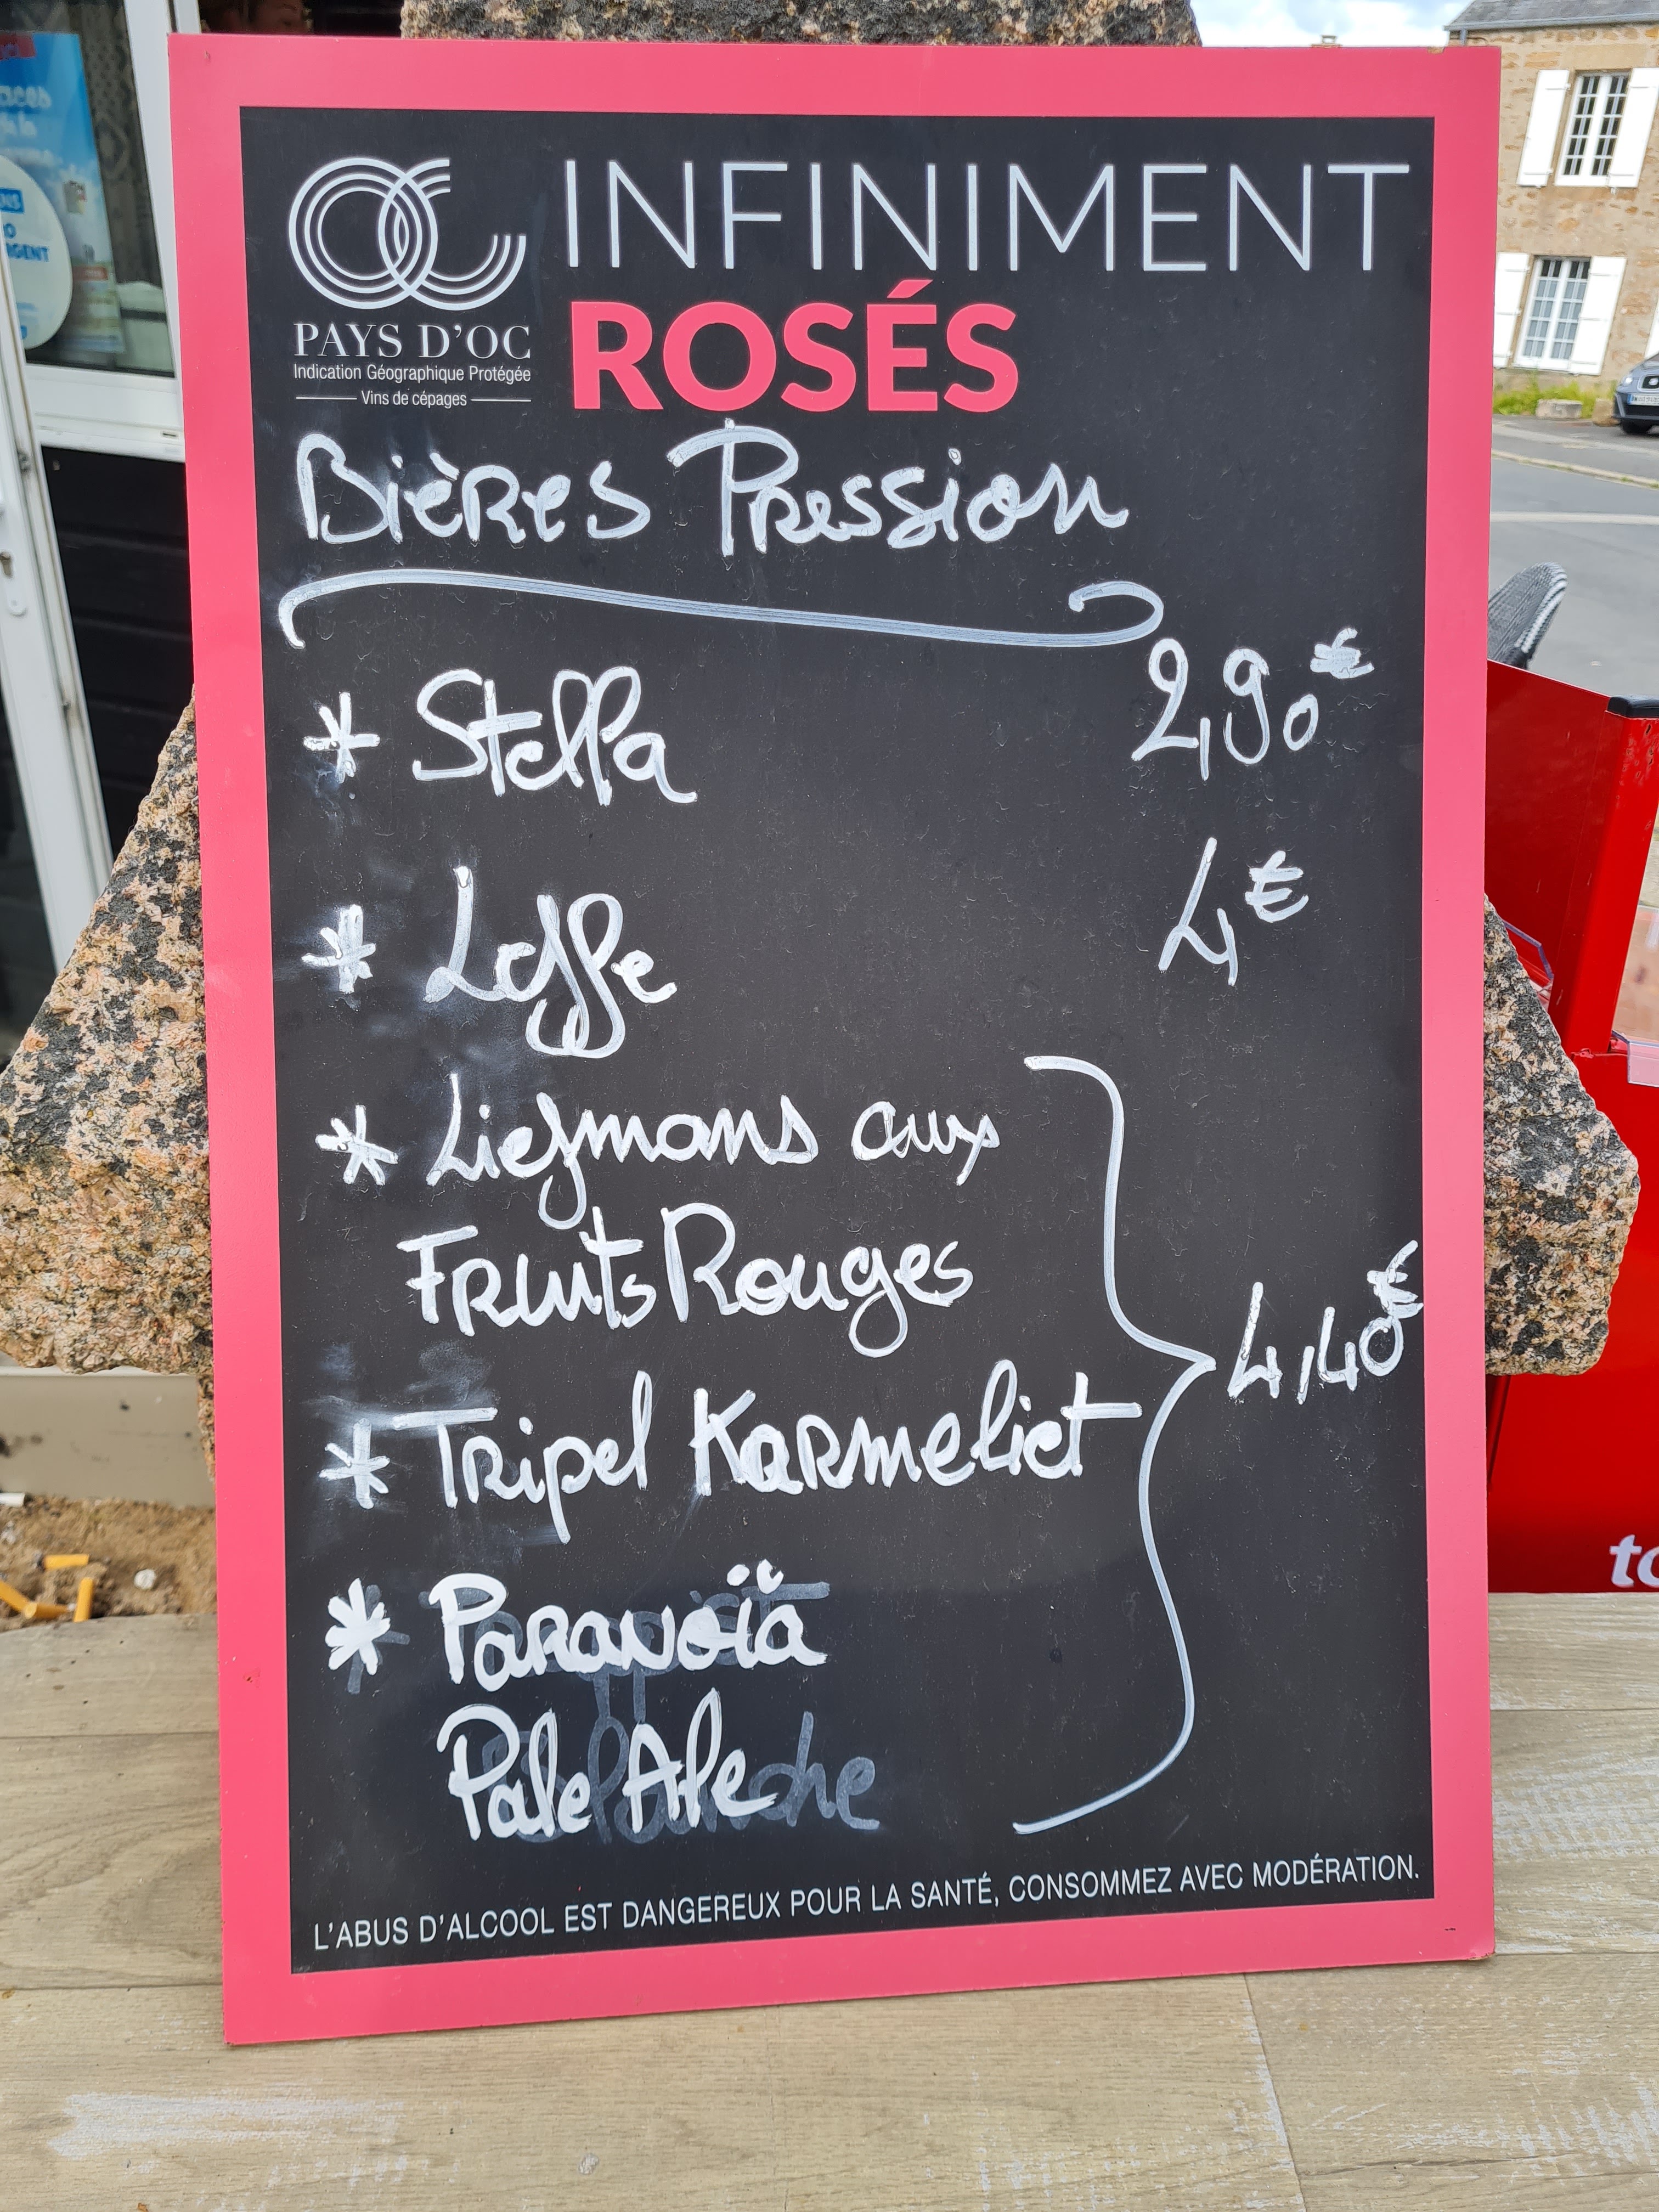 INFINIMENT
ROSÉS
PAYS D'OC
Indication Géographique Protégée
Vins de cépages
Bières Pression
* Stella 2,90€
* Leffe 4€
* Liefmans aux
Fruits Rouges
4,40€
* Tripel Karmeliet
* Paranoïa
Pale Ale
L'ABUS D'ALCOOL EST DANGEREUX POUR LA SANTÉ, CONSOMMEZ AVEC MODÉRATION.